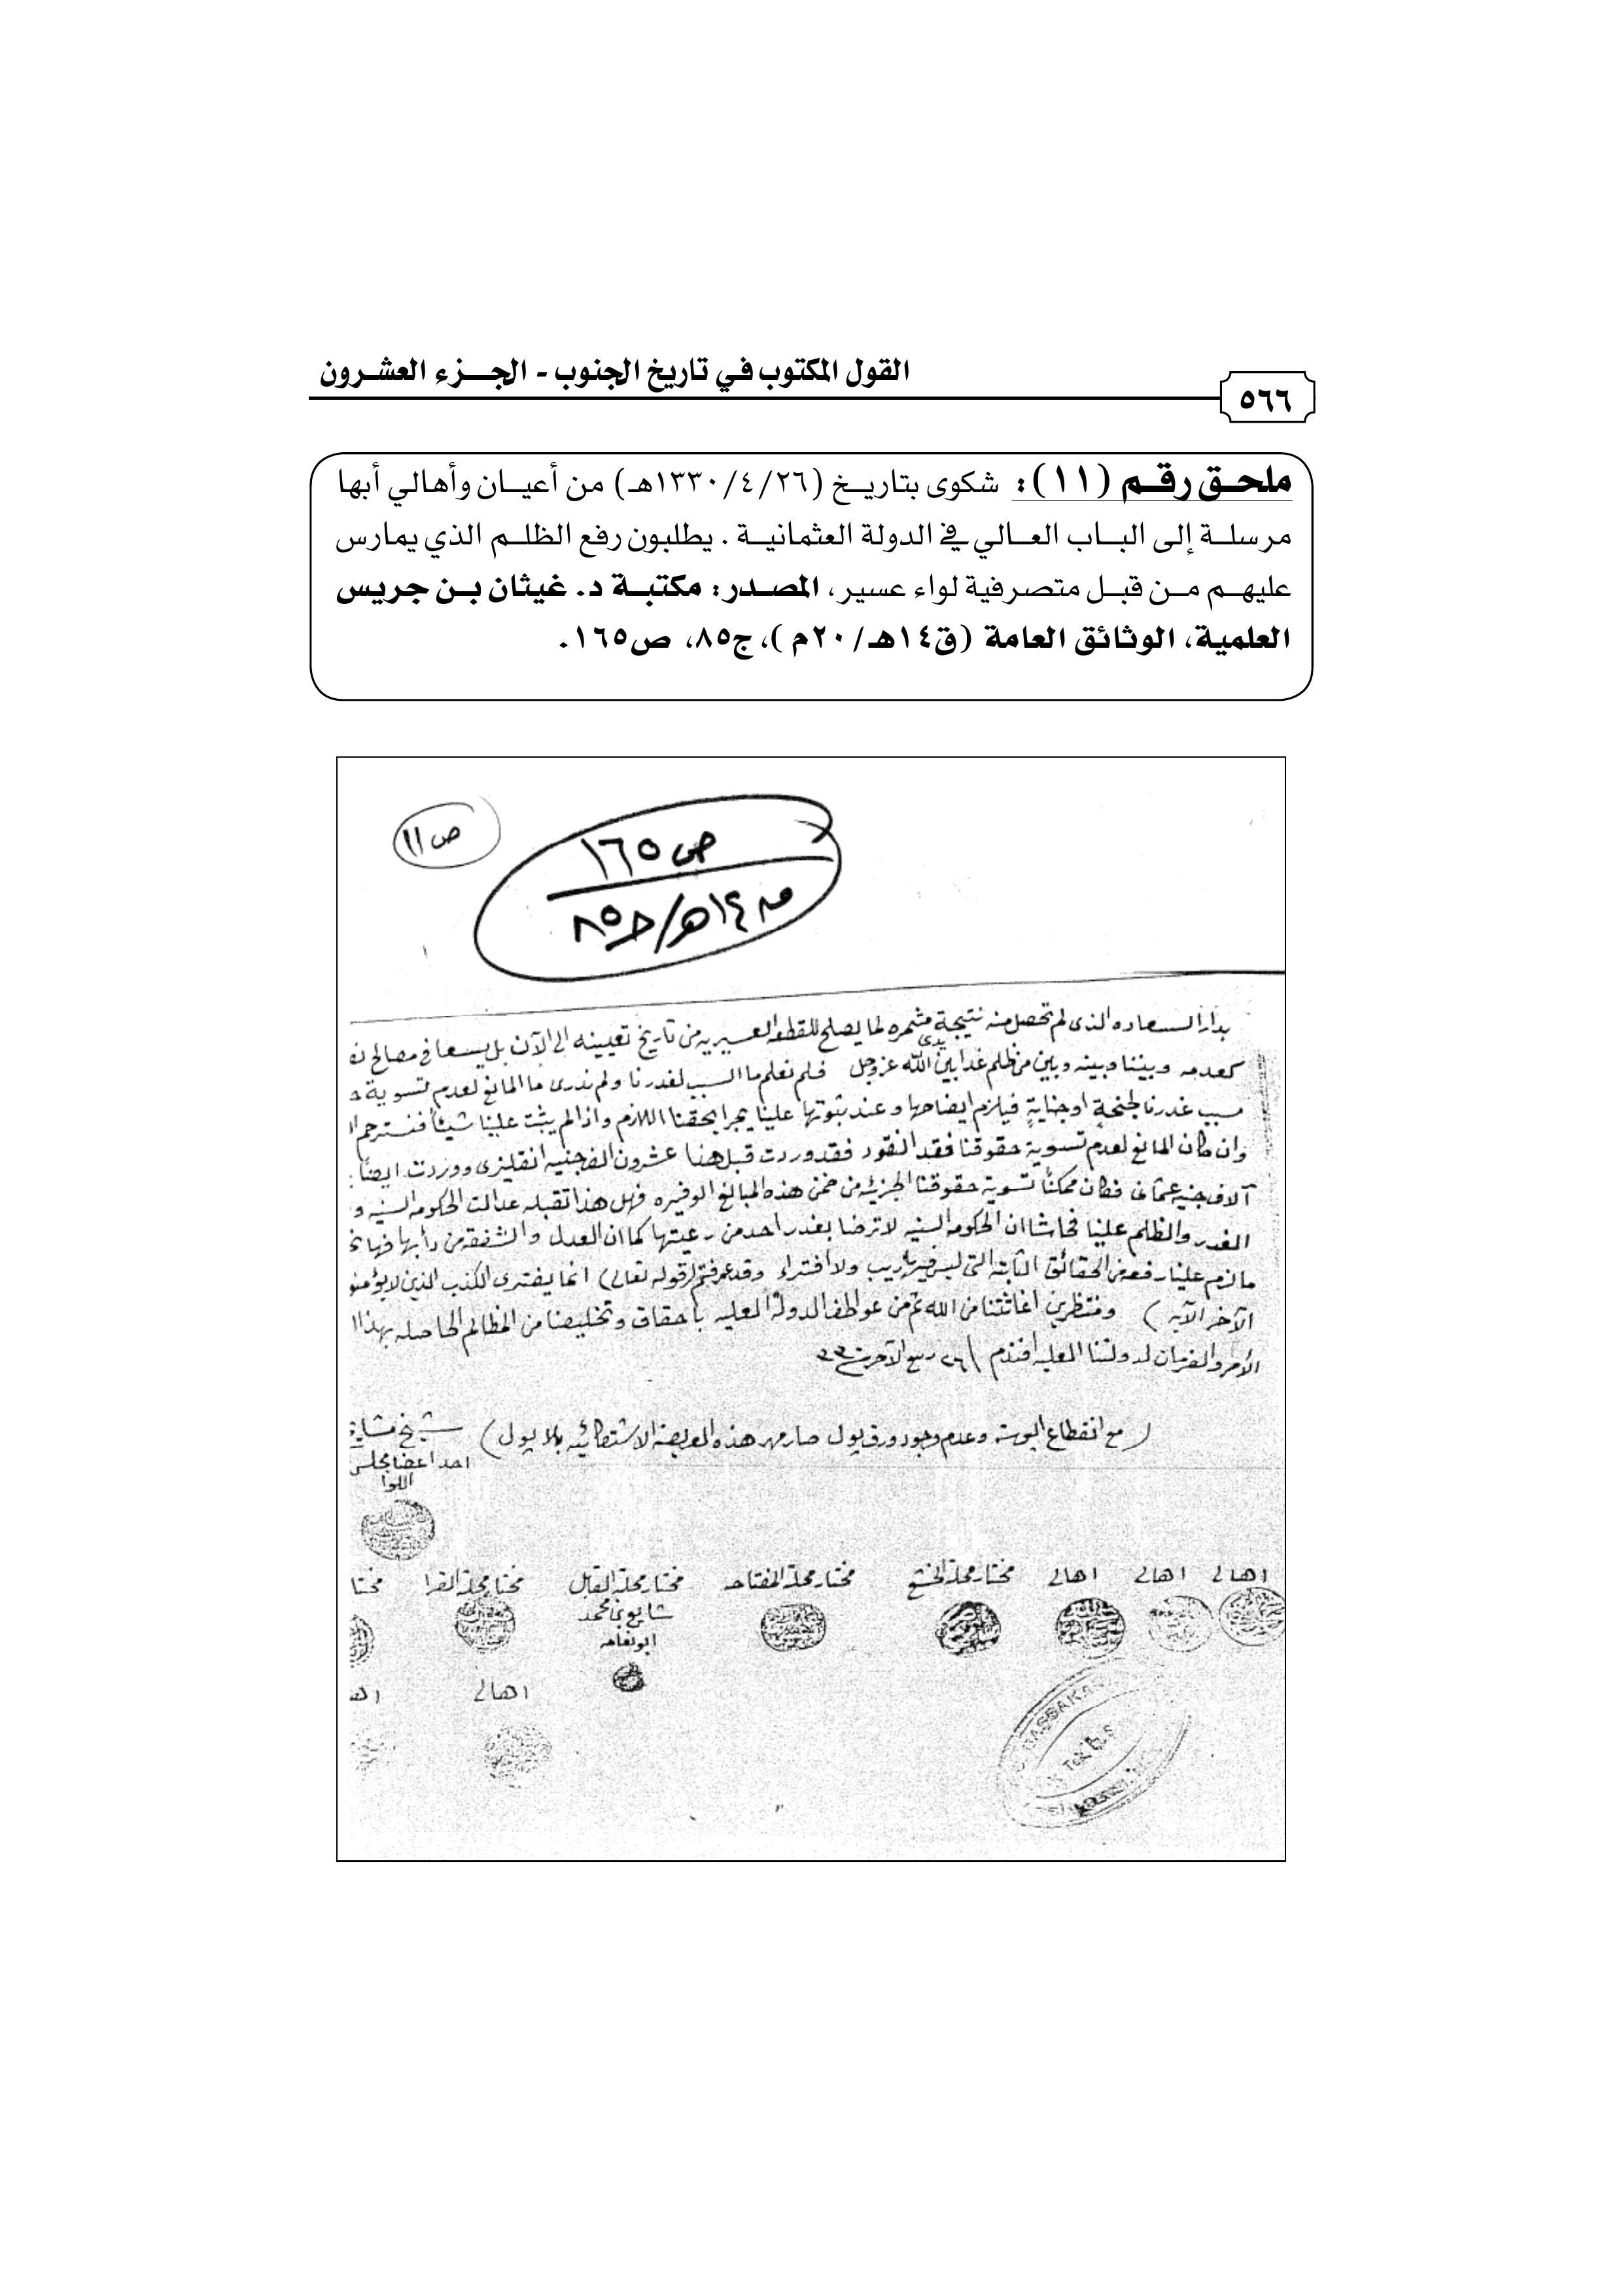 القول المكتوب في تاريخ الجنوب - الجـزء العشرون
٥٦٦
ملحق رقم (١١): شكوى بتاريخ (١٣٣٠/٤/٢٦هـ) من أعيان وأهالي أبها
مرسلة إلى الباب العالي في الدولة العثمانية . يطلبون رفع الظلم الذي يمارس
عليهم من قبل متصرفية لواء عسير، المصدر: مكتبة د. غيثان بن جريس
العلمية، الوثائق العامة (ق١٤هـ/٢٠م)، ج٨٥، ص١٦٥.
ص١١
ص ١٦٥
ق١٤هـ/ج٨٥
بدار السعاده الذى لم تحصل منه نتيجة مثمره لما يصلح للقطعه العسيريه من تاريخ تعيينه الى الآن بل يسعا فى مصالح
كعدمه وبيننا وبينه وبين من ظلم غدا بين يدى الله عز وجل فلم نعلم ما السبب لغدرنا ولم ندرى ما المانع لعدم تسوية
سبب غدرنا لجنحةٍ او جنايةٍ فيلزم ايضاحها وعند ثبوتها علينا يجرا بحقنا اللازم واذا لم يثبت علينا شيئاً فنسترحم
وان كان المانع لعدم تسوية حقوقنا فقد النقود فقد وردت قبل هذا عشرون الف جنيه انقليزى ووردت ايضاً
آلاف جنيه عثمانى فكان ممكناً تسوية حقوقنا الجزئيه من ضمن هذه المبالغ الوفيره فهل هذا تقبله عدالت الحكومه السنيه و
الغدر والظلم علينا فحاشا ان الحكومه السنيه لا ترضا بغدر احد من رعيتها كما ان العدل والشفقه من دأبها فهذا
ما لزم علينا رفعه من الحقائق الثابته التى ليس فيها ريب ولا افتراء وقد عرفتم (قوله تعالى) انما يفترى الكذب الذين لا يؤمنو
الآخر الآيه ) ومنتظرين اغاثتنا من الله ثم من عواطف الدولة العليه باحقاق وتخليصنا من المظالم الحاصله بهذا
الأمر والفرمان لدولتنا العليه افندم ٢٦ ربيع الآخر سنة ٣٣٠
(مع انقطاع البوسته وعدم وجود ورق بول صار مهر هذه العريضه الاشتكائيه بلا بول)
شيخ مشايخ
احد اعضا مجلس
اللوا
اهالى اهالى اهالى مختار محلة الخشع مختار محلة المفتاحه مختار محلة القابل مختار محلة القرا مختا
شايع بن محمد
ابو نعامه
اهالى اه